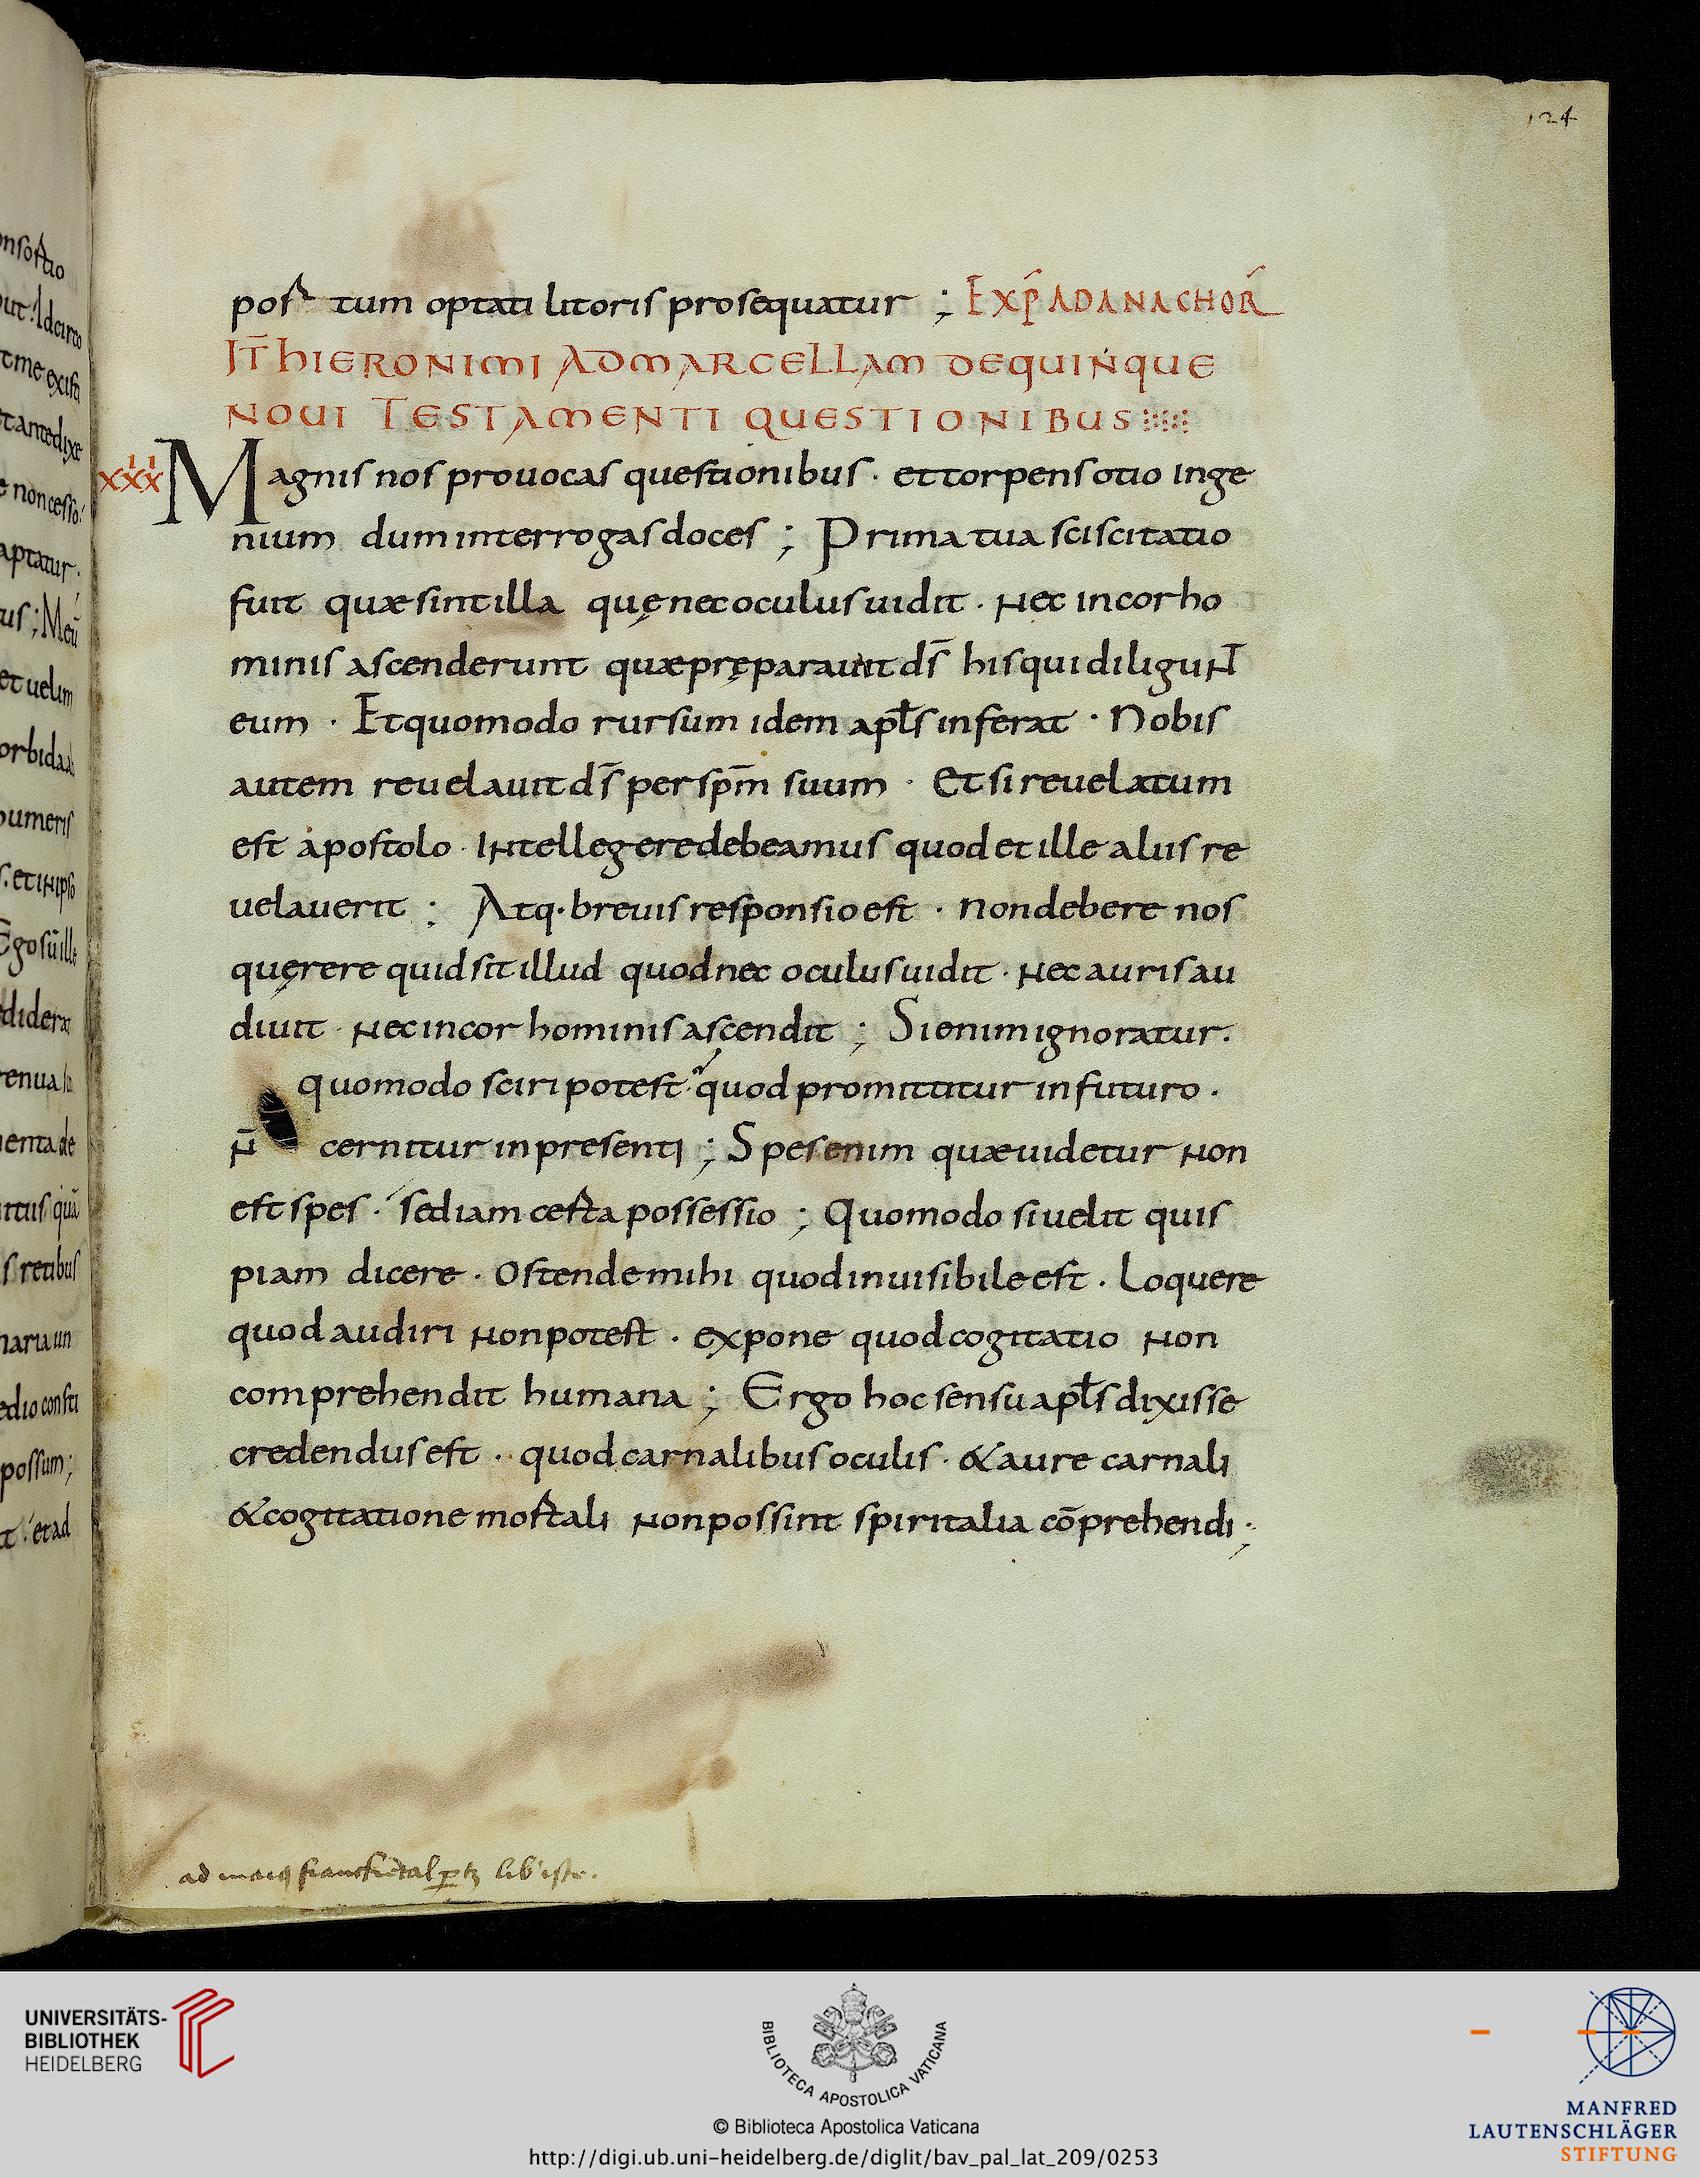 124
onsortio
out. Idcirco
tme exista
tantedixe
e non cesso
aptatur.
us; Meū
et uelim
orbidaa
oumeris
s. et inipso
Ego sū ille
ediderat
renua
menta de
rtus quā
s retibus
naria un
edio consti
possum;
et ad
por tum optati litoris prosequatur ; EXP AD ANACHOR
IT HIERONIMI AD MARCELLAM DE QUINQUE
NOUI TESTAMENTI QUESTIONIBUS
XXXII Magnis nos prouocas questionibus · et torpens otio inge
nium dum interrogas doces ; Prima tua sciscitatio
fuit quæ sint illa quę nec oculus uidit · Nec in cor ho
minis ascenderunt quæ pręparauit dſ̄ his qui diligunt
eum · Et quomodo rursum idem apłs inferat · Nobis
autem reuelauit dſ̄ per spm̄ suum · Et si reuelatum
est apostolo · Intellegere debeamus quod et ille aliis re
uelauerit : Atq· breuis responsio est · Non debere nos
quęrere quid sit illud quod nec oculus uidit · Nec auris au
diuit · Nec in cor hominis ascendit ; Si enim ignoratur .
quomodo sciri potest · quod promittitur in futuro .
N̄ cernitur in presenti ; Spes enim quæ uidetur non
est spes · sed iam certa possessio ; Quomodo si uelit quis
piam dicere · Ostende mihi quod inuisibile est . Loquere
quod audiri non potest . expone quod cogitatio non
comprehendit humana ; Ergo hoc sensu apłs dixisse
credendus est · quod carnalibus oculis · & aure carnali
& cogitatione mortali non possint spiritalia cōprehendi ;
lib' iste.
UNIVERSITÄTS-
BIBLIOTHEK
HEIDELBERG
BIBLIOTECA APOSTOLICA VATICANA
© Biblioteca Apostolica Vaticana
http://digi.ub.uni-heidelberg.de/diglit/bav_pal_lat_209/0253
MANFRED
LAUTENSCHLÄGER
STIFTUNG